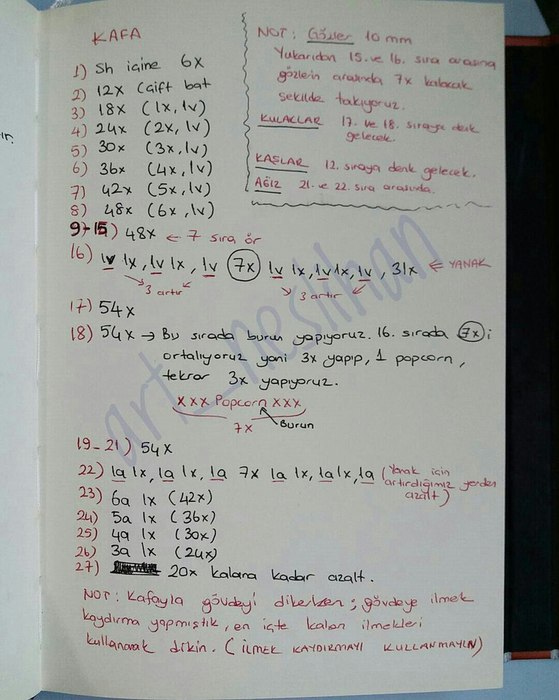 KAFA
1) Sh içine 6x
2) 12x (çift bat
3) 18x (1x, 1v)
4) 24x (2x, 1v)
5) 30x (3x, 1v)
6) 36x (4x, 1v)
7) 42x (5x, 1v)
8) 48x (6x, 1v)
NOT: Gözler 10 mm
Yukarıdan 15. ve 16. sıra arasına
gözlerin arasında 7x kalacak
şekilde takıyoruz.
KULAKLAR 17. ve 18. sıraya denk
gelecek.
KAŞLAR 12. sıraya denk gelecek.
AĞIZ 21. ve 22. sıra arasında.
9-15) 48x ← 7 sıra ör
16) 1v 1x, 1v 1x, 1v 7x 1v 1x, 1v 1x, 1v, 31x ← YANAK
3 artır 3 artır
17) 54x
18) 54x → Bu sırada burun yapıyoruz. 16. sırada 7x i
ortalıyoruz yani 3x yapıp, 1 popcorn,
tekrar 3x yapıyoruz.
xxx Popcorn xxx
7x Burun
19-21) 54x
22) 1a 1x, 1a 1x, 1a 7x 1a 1x, 1a 1x, 1a (Yanak için
artırdığımız yerden
azalt)
23) 6a 1x (42x)
24) 5a 1x (36x)
25) 4a 1x (30x)
26) 3a 1x (24x)
27) 20x kalana kadar azalt.
NOT: Kafayla gövdeyi dikerken; gövdeye ilmek
kaydırma yapmıştık, en içte kalan ilmekleri
kullanarak dikin. (İLMEK KAYDIRMAYI KULLANMAYIN)
art_neslihan